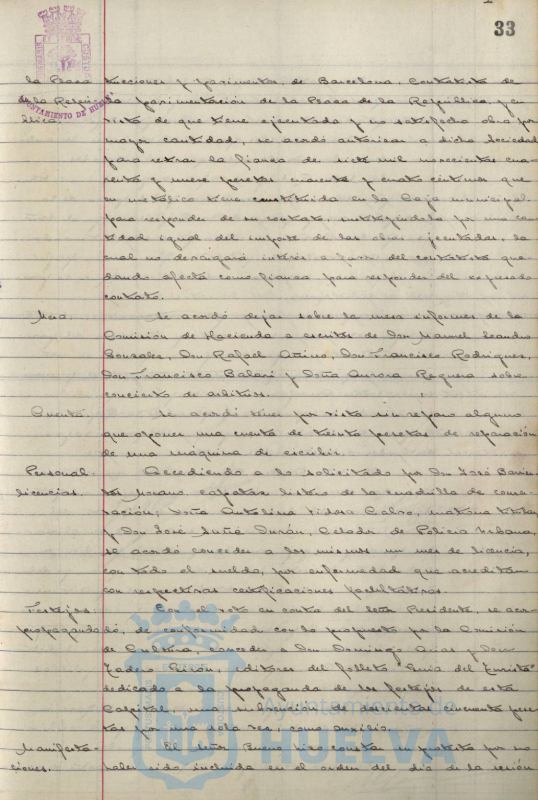 33
AYUNTAMIENTO DE HUELVA
la Plaza trucciones y pavimentos, de Barcelona, contratista de
de la Repú- la pavimentación de la Plaza de la República, y en
blica. vista de que tiene ejecutada y no satisfecha obra por
mayor cantidad, se acordó autorizar a dicha Sociedad
para retirar la fianza de siete mil novecientas cua-
renta y nueve pesetas cincuenta y cuatro céntimos que
en metálico tiene constituida en la Caja municipal
para responder de su contrato, sustituyéndola por una can-
tidad igual del importe de las obras ejecutadas, la
cual no devengará interés a favor del contratista que-
dando afecta como fianza para responder del expresado
contrato.
Mesa. Se acordó dejar sobre la mesa informes de la
Comisión de Hacienda a escritos de Don Manuel Leandro
Gonzalez, Don Rafael Don Francisco Rodriguez,
Don Francisco Balari y Doña Aurora Requera sobre
concierto de arbitrios.
Cuenta. Se acordó tener por visto sin reparo alguno
que oponer una cuenta de treinta pesetas de reparación
de una máquina de escribir.
Personal. Accediendo a lo solicitado por Don José Barrien-
licencias. tos Morano capataz listero de la cuadrilla de conser-
vación; Doña Antolina Calvo, matrona titular
y Don José Durán, Celador de Policía Urbana,
se acordó conceder a los mismos un mes de licencia,
con todo el sueldo, por enfermedad que acreditan
con respectivas certificaciones facultativas.
Festejos. Con el voto en contra del señor Presidente, se acor-
propaganda dó, de conformidad con lo propuesto por la Comisión
de Cultura, conceder a Don Domingo Arias y Don
Tadeo Pirrón, editores del folleto "Guía del Turista"
dedicado a la propaganda de los festejos de esta
Capital, una subvención de doscientas cincuenta pese-
tas por una sola vez, como auxilio.
Manifesta- El señor Bueno hizo constar su protesta por no
ciones. haber sido incluida en el orden del día de la sesión
Ayuntamiento de
HUELVA